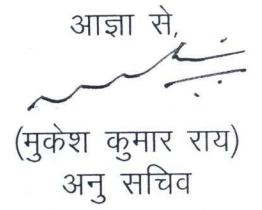 आज्ञा से,
(मुकेश कुमार राय)
अनु सचिव